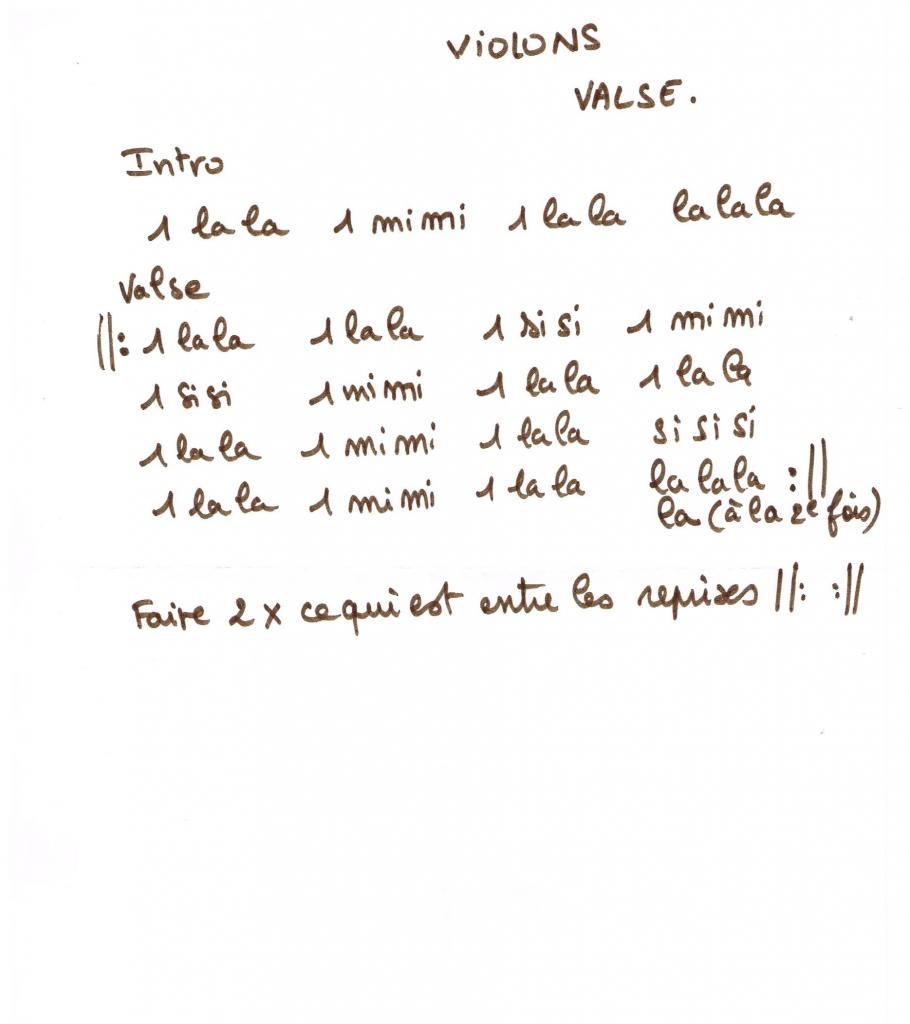 VIOLONS
VALSE.
Intro
1 la la 1 mi mi 1 la la la la la
Valse
||: 1 la la 1 la la 1 si si 1 mi mi
1 si si 1 mi mi 1 la la 1 la la
1 la la 1 mi mi 1 la la si si si
1 la la 1 mi mi 1 la la la la la :||
la (à la 2e fois)
Faire 2 x ce qui est entre les reprises ||: :||